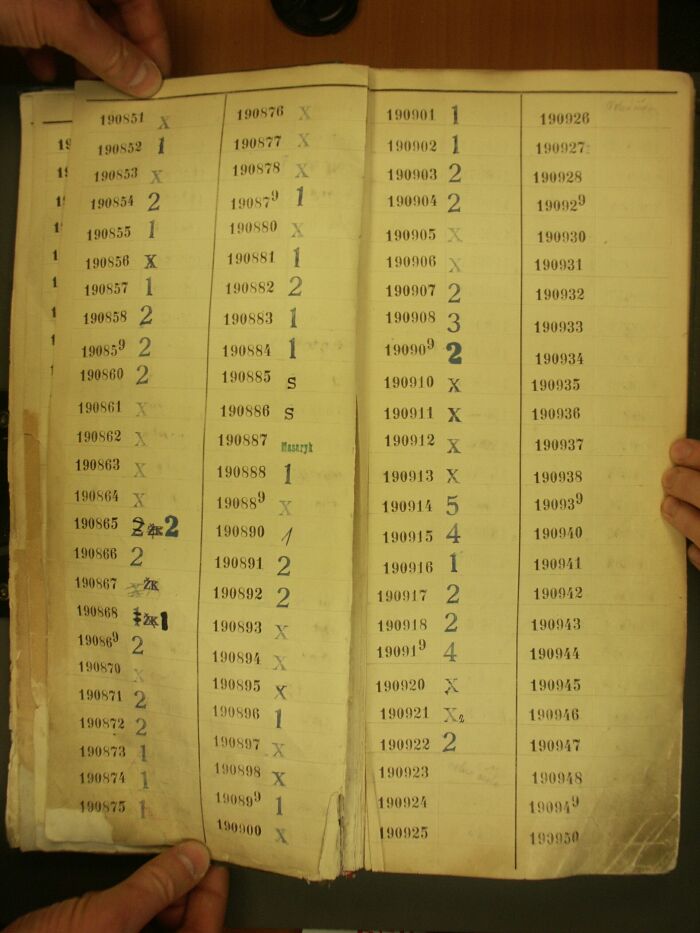 190851 X
190852 1
190853 X
190854 2
190855 1
190856 X
190857 1
190858 2
190859 2
190860 2
190861 X
190862 X
190863 X
190864 X
190865 2 ŽK 2
190866 2
190867 X ŽK
190868 1 ŽK 1
190869 2
190870 X
190871 2
190872 2
190873 1
190874 1
190875 1
190876 X
190877 X
190878 X
190879 1
190880 X
190881 1
190882 2
190883 1
190884 1
190885 S
190886 S
190887 Masaryk
190888 1
190889 X
190890 1
190891 2
190892 2
190893 X
190894 X
190895 X
190896 1
190897 X
190898 X
190899 1
190900 X
190901 1
190902 1
190903 2
190904 2
190905 X
190906 X
190907 2
190908 3
190909 2
190910 X
190911 X
190912 X
190913 X
190914 5
190915 4
190916 1
190917 2
190918 2
190919 4
190920 X
190921 X2
190922 2
190923
190924
190925
190926
190927
190928
190929
190930
190931
190932
190933
190934
190935
190936
190937
190938
190939
190940
190941
190942
190943
190944
190945
190946
190947
190948
190949
190950